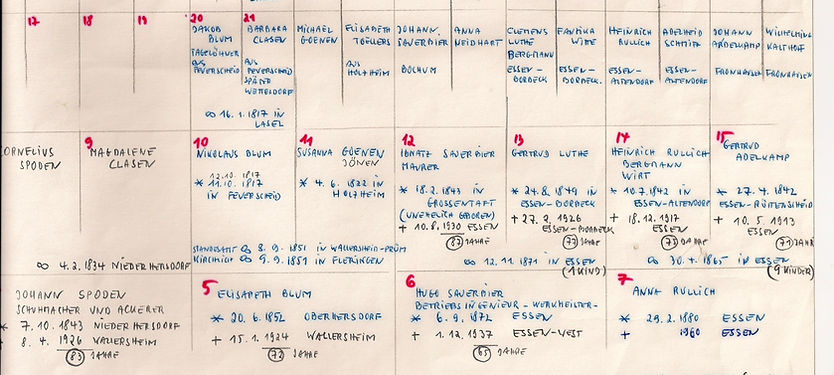 17 18 19 20 21
JAKOB BLUM
TAGELÖHNER
AUS FEUERSCHEID
BARBARA CLASEN
AUS FEUERSCHEID
SPÄTER WETTELDORF
∞ 16.1.1817 IN LASEL
MICHAEL GOENEN
ELISABETH
AUS HOLZHEIM
JOHANN SAUERBIER
BOCHUM
ANNA NEIDHART
CLEMENS LUTHE
BERGMANN
ESSEN-BORBECK
ESSEN-BORBECK
HEINRICH RULLICH
ESSEN-ALTENDORF
ADELHEID SCHMITZ
ESSEN-ALTENDORF
JOHANN ADELKAMP
FRONHAUSEN
WILHELMINE KALTHOFF
FRONHAUSEN
CORNELIUS SPODEN
9
MAGDALENE CLASEN
∞ 4.2.1834 NIEDERHERSDORF
10
NIKOLAUS BLUM
12.10.1817
* 11.10.1817
IN FEUERSCHEID
11
SUSANNA GOENEN
JÖNEN
* 4.6.1822 IN
HOLZHEIM
STANDESAMT ∞ 8.9.1851 IN WALLERSHEIM-PRÜM
KIRCHLICH ∞ 9.9.1851 IN FLERINGEN
12
IGNATZ SAUERBIER
MAURER
* 18.2.1843 IN
GROSSENTAFT
(UNEHELICH GEBOREN)
+ 10.8.1930 ESSEN
87 JAHRE
13
GERTRUD LUTHE
* 24.8.1849 IN
ESSEN-BORBECK
+ 27.2.1926
ESSEN-BORBECK
77 JAHRE
∞ 12.11.1871 IN ESSEN
(1 KIND)
14
HEINRICH RULLICH
BERGMANN
WIRT
* 10.7.1842 IN
ESSEN-ALTENDORF
+ 18.12.1917
ESSEN
75 JAHRE
15
GERTRUD
ADELKAMP
* 27.4.1842
ESSEN-RÜTTENSCHEID
+ 10.5.1913
ESSEN
71 JAHR
∞ 30.4.1865 IN ESSEN
(9 KINDER)
JOHANN SPODEN
SCHUHMACHER UND ACKERER
* 7.10.1843 NIEDERHERSDORF
8.4.1926 WALLERSHEIM
83 JAHRE
5
ELISABETH BLUM
* 20.6.1852 OBERHERSDORF
+ 15.1.1924 WALLERSHEIM
72 JAHRE
6
HUGO SAUERBIER
BETRIEBSINGENIEUR - WERKMEISTER -
* 6.9.1872 ESSEN
+ 1.12.1937 ESSEN-WEST
65 JAHRE
7
ANNA RULLICH
* 29.2.1880 ESSEN
+ 1960 ESSEN